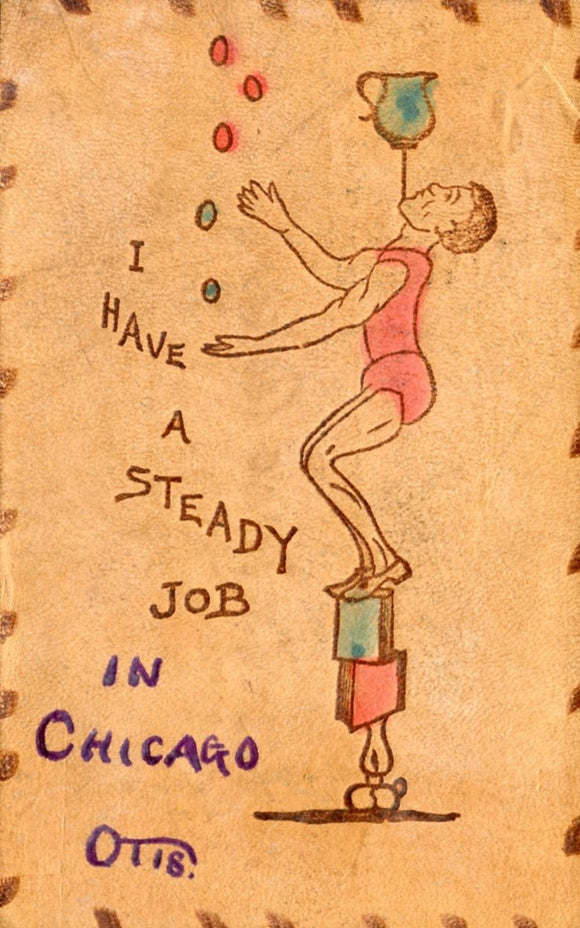 I
HAVE
A
STEADY
JOB
IN
CHICAGO
OTIS.